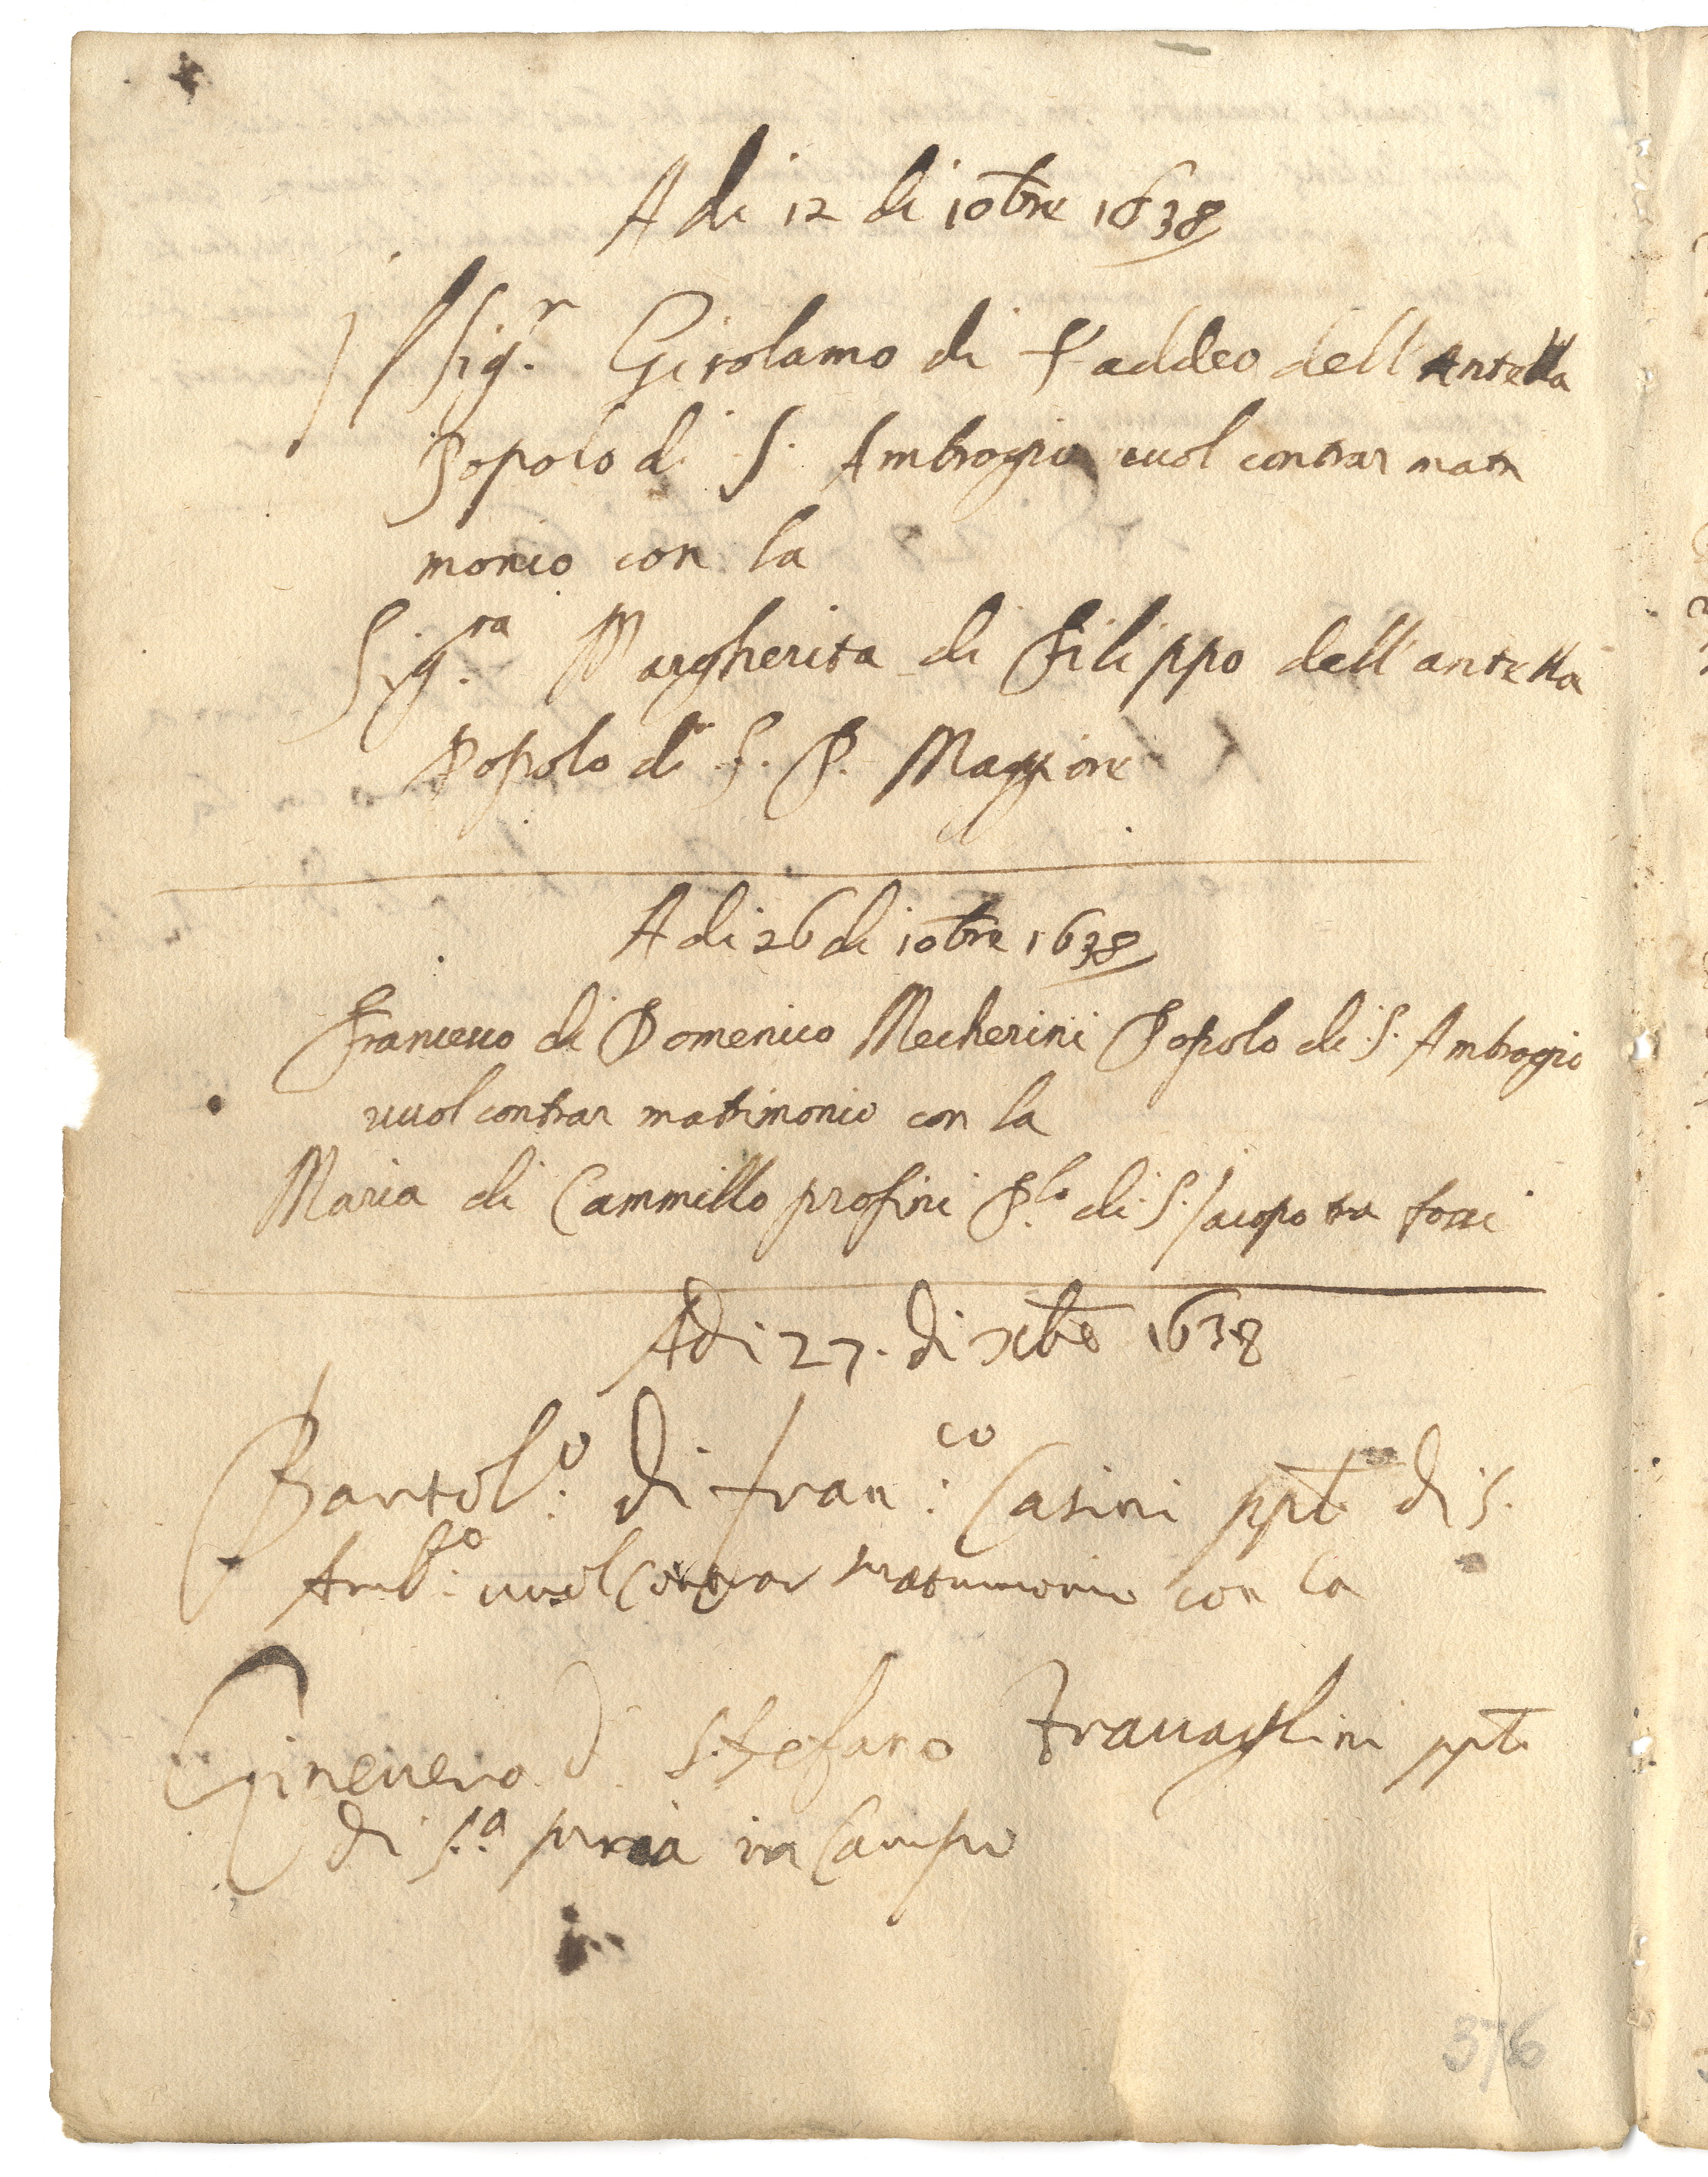 A di 12 di 10bre 1638
Il Sig.r Girolamo di Taddeo dell'Antella
Popolo di S. Ambrogio vuol contrar matri
monio con la
Sig.ra Margherita di Filippo dell'antella
Popolo di S. P. Maggiore
A di 26 di 10bre 1638
Francesco di Domenico Mecherini Popolo di S. Ambrogio
vuol contrar matrimonio con la
Maria di Cammillo profini P.lo di S. Jacopo tra fossi
Adi 27. di xbre 1638
Bartol.o di fran.co Casini ppl.o di S.
Amb.o vuol contrar matrimonio con la
Ginevera di Stefano Travaglini ppl.o
di S.a maria in Campo
376